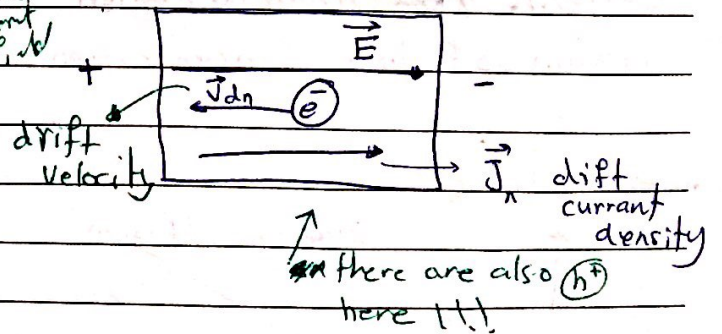 E
+
-
Jdn
e-
drift
velocity
Jn dift
currant
density
there are also h+
here !!!